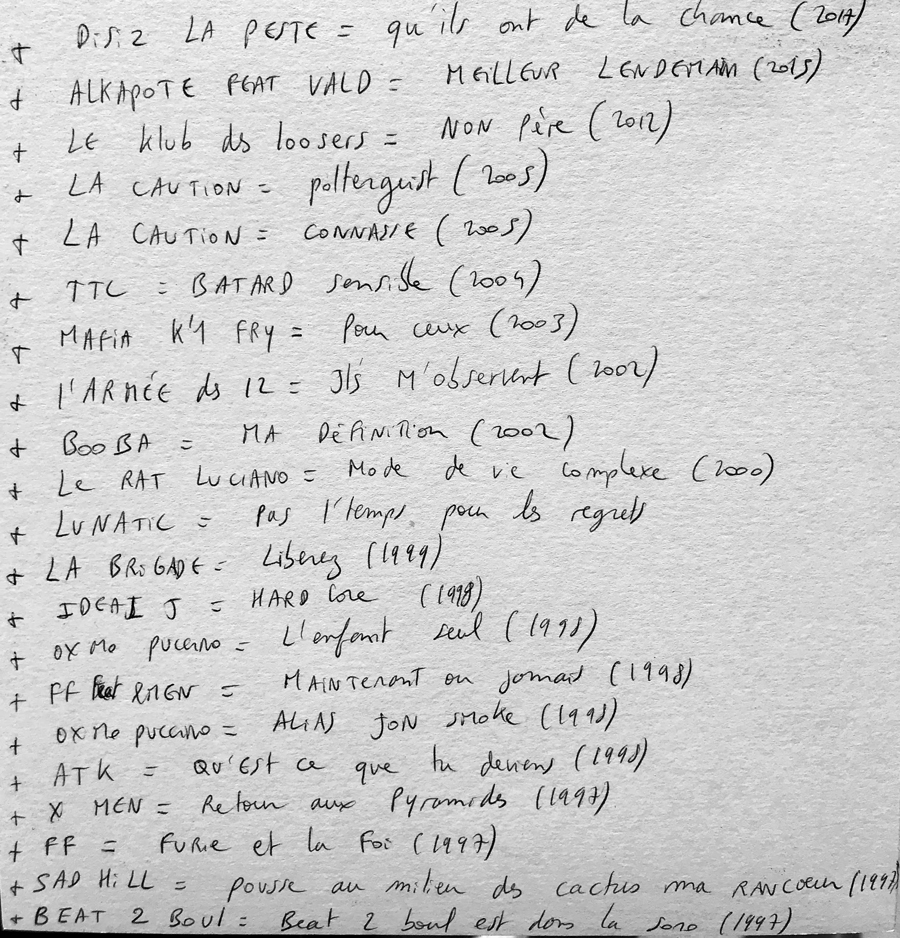 + DISIZ LA PESTE = qu'ils ont de la chance (2017)
+ ALKAPOTE FEAT VALD = MEILLEUR LENDEMAIN (2015)
+ LE klub ds loosers = NON père (2012)
+ LA CAUTION = polterguist (2005)
+ LA CAUTION = CONNASSE (2005)
+ TTC = BATARD sensible (2004)
+ MAFIA K'1 FRY = Pour ceux (2003)
+ l'ARMÉE ds 12 = Ils M'observent (2002)
+ BOOBA = MA DéFINITION (2002)
+ Le RAT LUCIANO = Mode de vie complexe (2000)
+ LUNATIC = Pas l'temps pour les regrets
+ LA BRIGADE = Liberez (1999)
+ IDEAL J = HARDCore (1998)
+ OXMo puccino = L'enfant seul (1998)
+ FF feat XMEN = MAINTENANT ou jamais (1998)
+ OXMo puccino = ALIAS JON smoke (1998)
+ ATK = QU'EST ce que tu deviens (1998)
+ X MEN = Retour aux Pyramids (1997)
+ FF = FURIE et la Foi (1997)
+ SAD HiLL = pousse au milieu des cactus ma RANCOEUR (1997)
+ BEAT 2 BOUL = Beat 2 boul est dans la sono (1997)